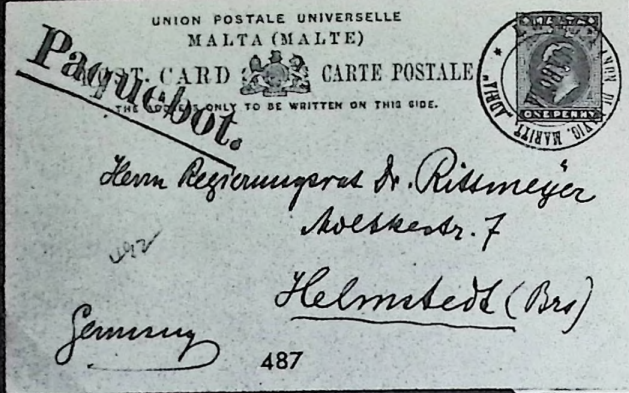 UNION POSTALE UNIVERSELLE
MALTA (MALTE)
POST CARD CARTE POSTALE
THE ADDRESS ONLY TO BE WRITTEN ON THIS SIDE.
Paquebot.
MALTA
ONE PENNY
"ADRIA"
MARITT.
Herrn Regierungsrat Dr. Rittmeyer
Moltkestr. 7
Helmstedt (Brs)
Germany
487